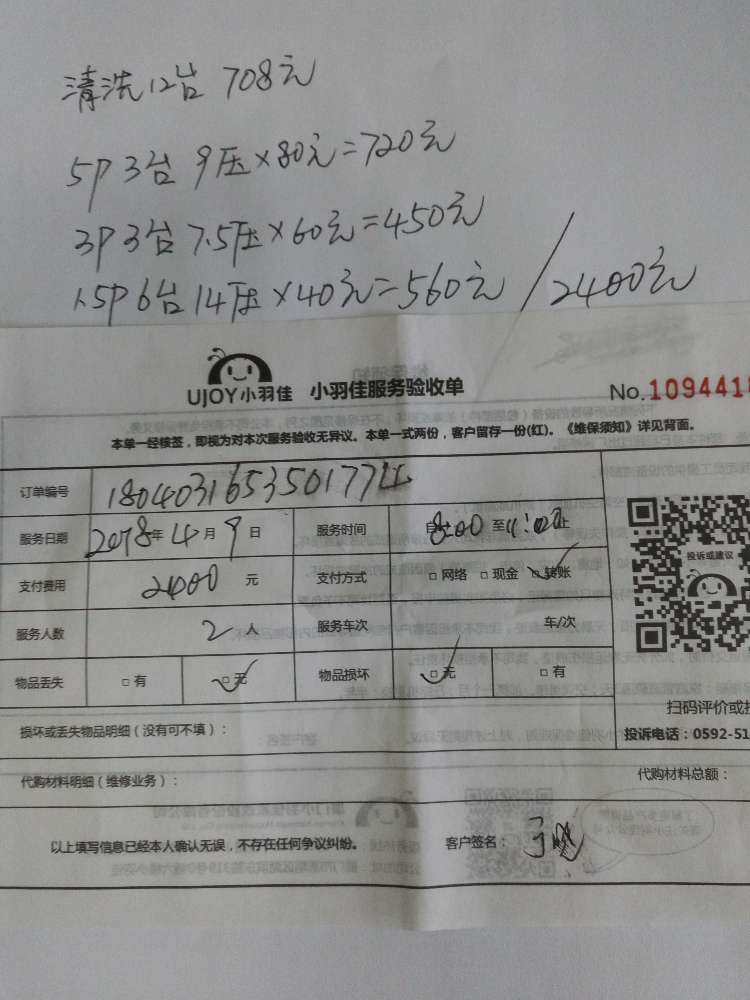 清洗12台 708元
5P 3台 9压×80元=720元
3P 3台 7.5压×60元=450元
1.5P 6台 14压×40元=560元 / 2400元
UJOY小羽佳 小羽佳服务验收单 No.1094418
本单一经核签，即视为对本次服务验收无异议。本单一式两份，客户留存一份(红)。《维保须知》详见背面。
订单编号 18040316535017714
服务日期 2018年4月9日 服务时间 自8:00至11:00止
支付费用 2400 元 支付方式 □ 网络 □ 现金 ☑ 转账
服务人数 2 人 服务车次 车/次
物品丢失 □ 有 ☑ 无 物品损坏 ☑ 无 □ 有
投诉或建议
扫码评价或投
损坏或丢失物品明细（没有可不填）：
投诉电话：0592-51
代购材料明细（维修业务）： 代购材料总额：
以上填写信息已经本人确认无误，不存在任何争议纠纷。 客户签名：